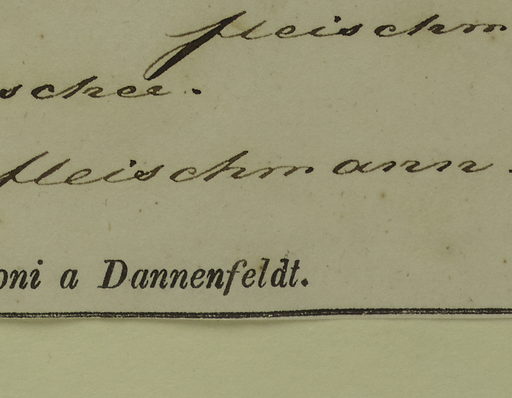 fleischm
schee.
fleischmann.
oni a Dannenfeldt.